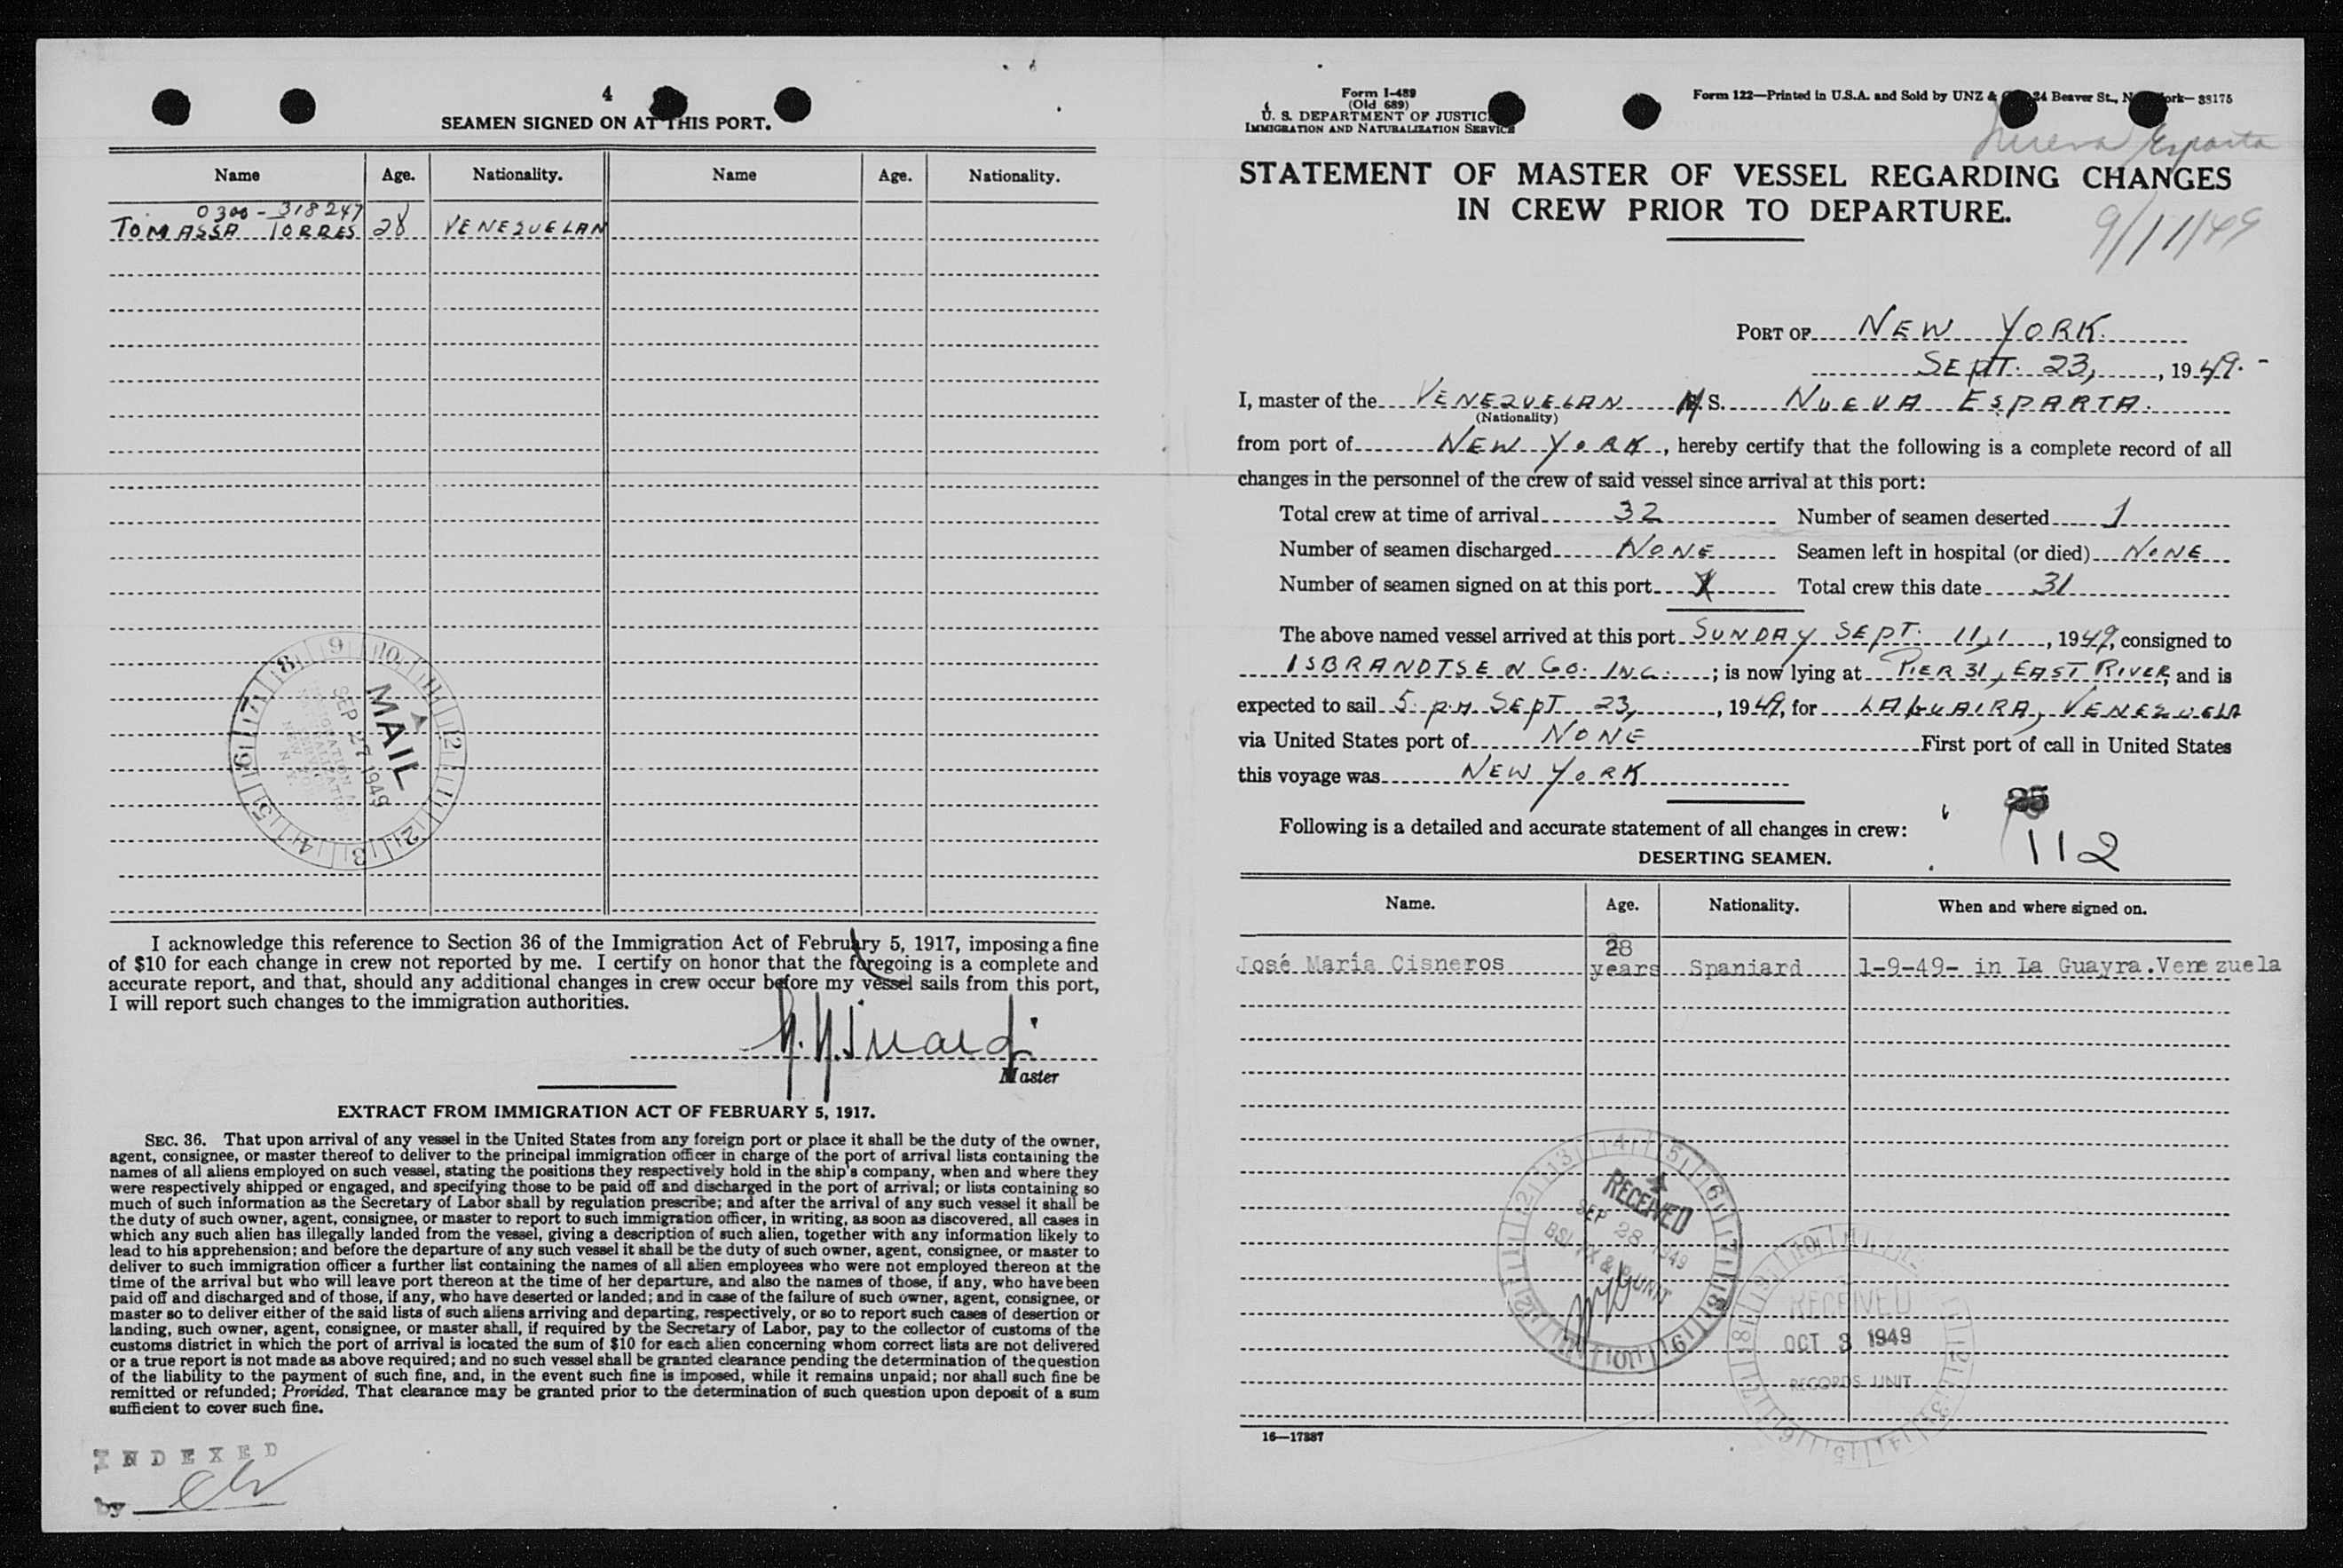 4
SEAMEN SIGNED ON AT THIS PORT.
Name Age. Nationality. Name Age. Nationality.
0300-318247
TOMASSA TORRES 28 VENEZUELAN
MAIL
SEP 27 1949
I acknowledge this reference to Section 36 of the Immigration Act of February 5, 1917, imposing a fine
of $10 for each change in crew not reported by me. I certify on honor that the foregoing is a complete and
accurate report, and that, should any additional changes in crew occur before my vessel sails from this port,
I will report such changes to the immigration authorities.
Master
EXTRACT FROM IMMIGRATION ACT OF FEBRUARY 5, 1917.
SEC. 36. That upon arrival of any vessel in the United States from any foreign port or place it shall be the duty of the owner,
agent, consignee, or master thereof to deliver to the principal immigration officer in charge of the port of arrival lists containing the
names of all aliens employed on such vessel, stating the positions they respectively hold in the ship's company, when and where they
were respectively shipped or engaged, and specifying those to be paid off and discharged in the port of arrival; or lists containing so
much of such information as the Secretary of Labor shall by regulation prescribe; and after the arrival of any such vessel it shall be
the duty of such owner, agent, consignee, or master to report to such immigration officer, in writing, as soon as discovered, all cases in
which any such alien has illegally landed from the vessel, giving a description of such alien, together with any information likely to
lead to his apprehension; and before the departure of any such vessel it shall be the duty of such owner, agent, consignee, or master to
deliver to such immigration officer a further list containing the names of all alien employees who were not employed thereon at the
time of the arrival but who will leave port thereon at the time of her departure, and also the names of those, if any, who have been
paid off and discharged and of those, if any, who have deserted or landed; and in case of the failure of such owner, agent, consignee, or
master so to deliver either of the said lists of such aliens arriving and departing, respectively, or so to report such cases of desertion or
landing, such owner, agent, consignee, or master shall, if required by the Secretary of Labor, pay to the collector of customs of the
customs district in which the port of arrival is located the sum of $10 for each alien concerning whom correct lists are not delivered
or a true report is not made as above required; and no such vessel shall be granted clearance pending the determination of the question
of the liability to the payment of such fine, and, in the event such fine is imposed, while it remains unpaid; nor shall such fine be
remitted or refunded; Provided, That clearance may be granted prior to the determination of such question upon deposit of a sum
sufficient to cover such fine.
INDEXED
by
Form I-489
(Old 689)
U. S. DEPARTMENT OF JUSTICE
IMMIGRATION AND NATURALIZATION SERVICE
Form 122—Printed in U.S.A. and Sold by UNZ & 24 Beaver St., 38175
Nueva Esparta
STATEMENT OF MASTER OF VESSEL REGARDING CHANGES
IN CREW PRIOR TO DEPARTURE.
9/11/49
PORT OF NEW YORK.
SEPT. 23, 1949.-
I, master of the VENEZUELAN M.S. NUEVA ESPARTA.
(Nationality)
from port of NEW YORK, hereby certify that the following is a complete record of all
changes in the personnel of the crew of said vessel since arrival at this port:
Total crew at time of arrival 32 Number of seamen deserted 1
Number of seamen discharged NONE Seamen left in hospital (or died) NONE
Number of seamen signed on at this port Total crew this date 31
The above named vessel arrived at this port SUNDAY SEPT. 11, 1949, consigned to
ISBRANDTSEN CO. INC. ; is now lying at PIER 31, EAST RIVER, and is
expected to sail 5 P.M. SEPT 23, 1949, for LAGUAIRA, VENEZUELA
via United States port of NONE First port of call in United States
this voyage was NEW YORK
Following is a detailed and accurate statement of all changes in crew:
112
DESERTING SEAMEN.
Name. Age. Nationality. When and where signed on.
José María Cisneros 28 years Spaniard 1-9-49- in La Guayra.Venezuela
RECEIVED
SEP 28 1949
RECEIVED
OCT 3 1949
RECORDS UNIT
16—17887